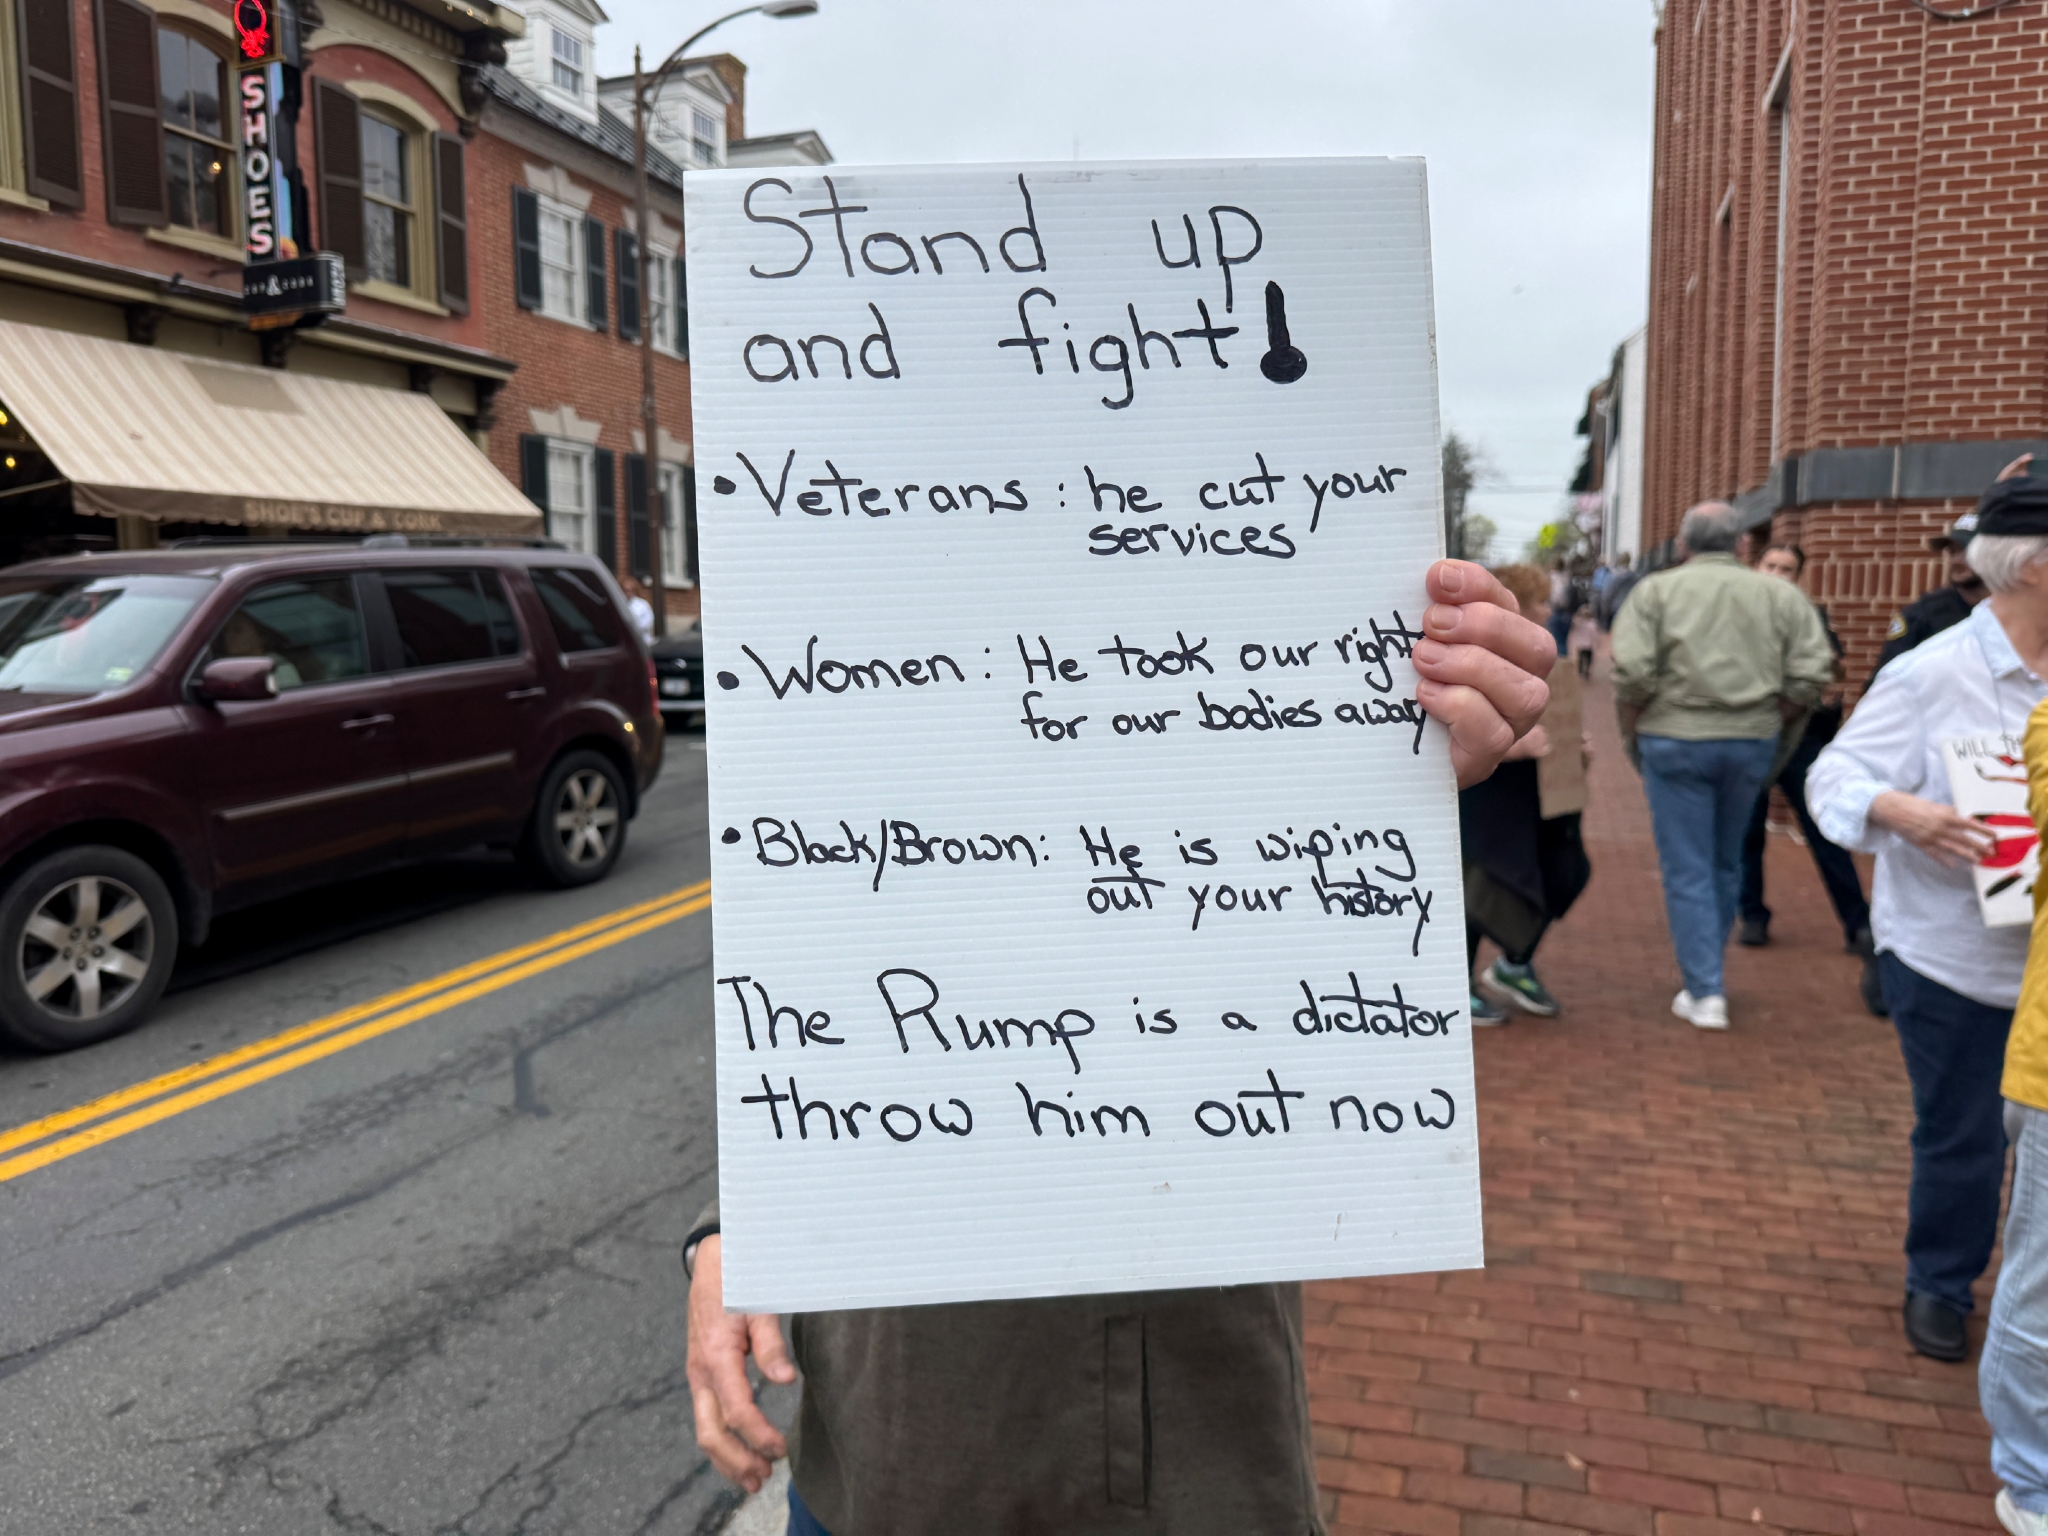 SHOES
SHOE'S CUP & CORK
Stand up
and fight!
• Veterans: he cut your
services
• Women: He took our right
for our bodies away
• Black/Brown: He is wiping
out your history
The Rump is a dictator
throw him out now
WILL